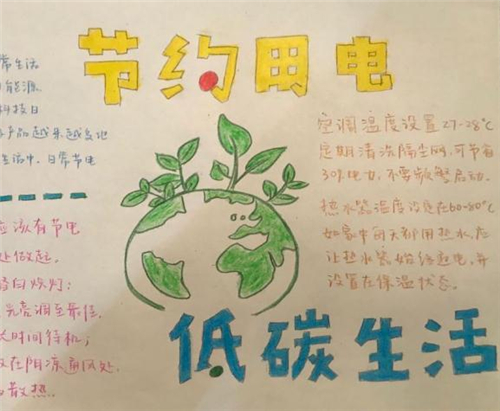 节约用电
常生活
能源
科技日
产品越来越多地
生活中,日常节电
应该有节电
处做起,
白炽灯;
亮调至最佳
时间待机;
在阴凉通风处
散热.
空调温度设置27-28℃
定期清洗隔尘网,可节省
30%电力,不要频繁启动.
热水器温度设定在60-80℃
如家中每天都用热水,应
让热水器始终通电,并
设置在保温状态.
低碳生活